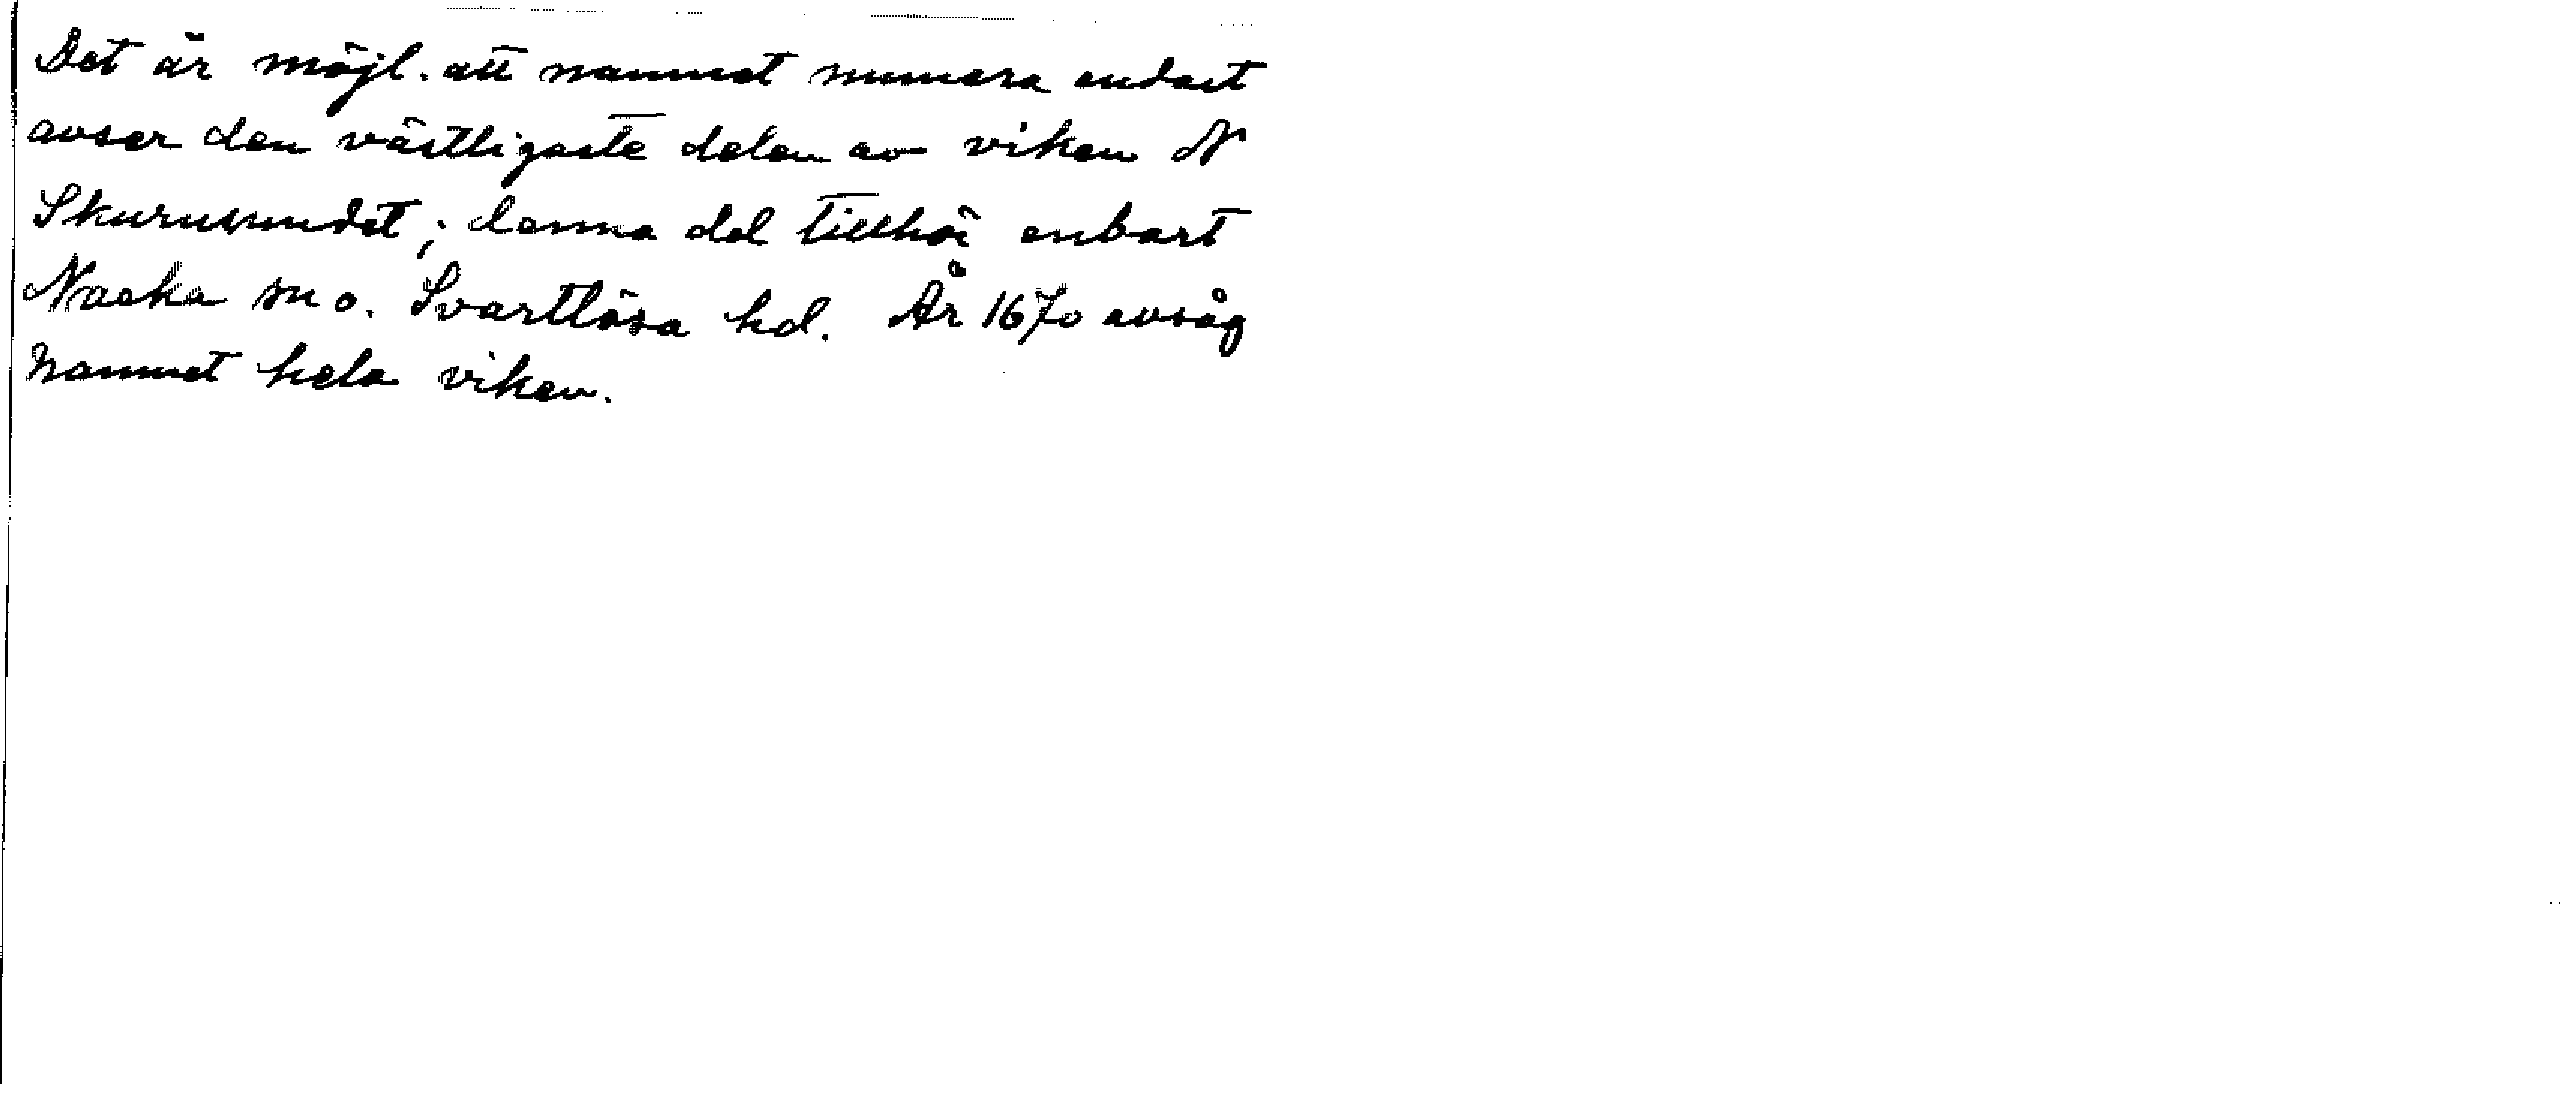 Det är möjl. att namnet numera endast
avser den västligaste delen av viken N
Skurusundet; denna del tillhör enbart
Nacka sn o. Svartlösa hd. År 1670 avsåg
namnet hela viken.